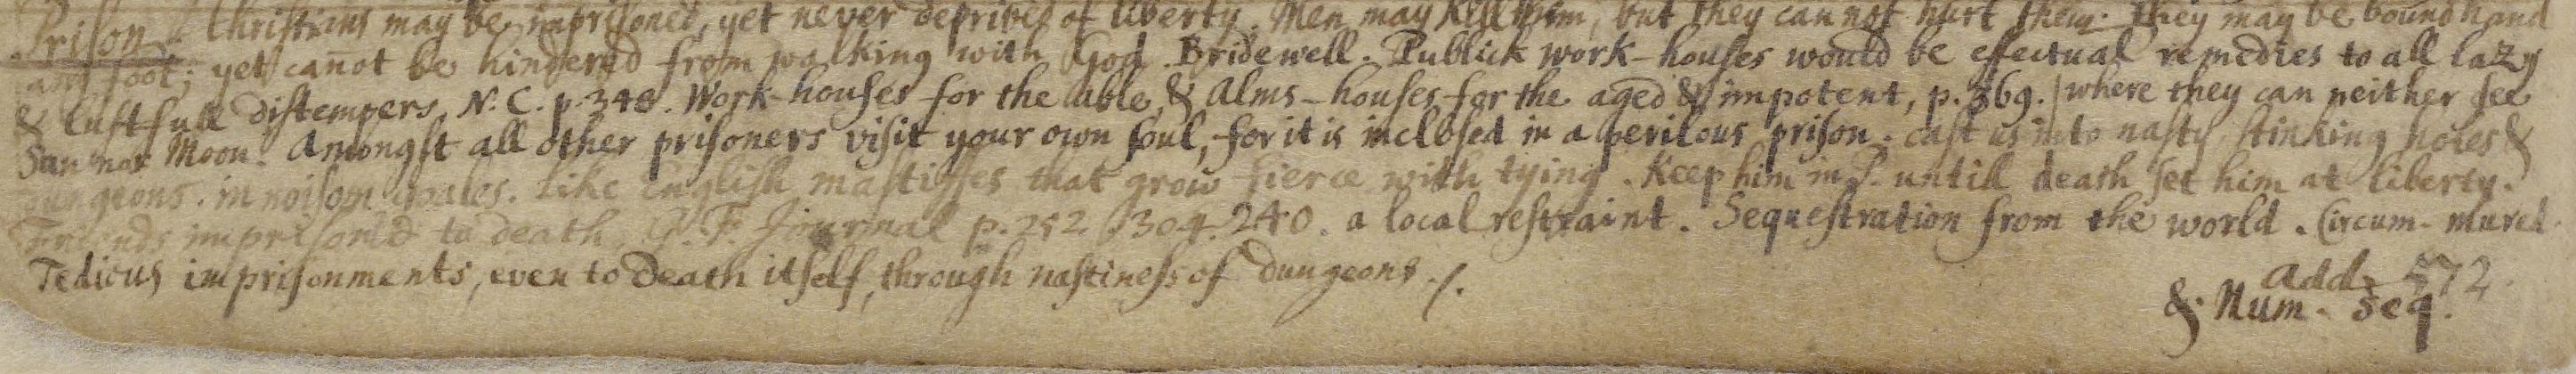 Prison. Christians may be imprisoned, yet never deprived of liberty. Men may kill them, but they cannot hurt them. They may be bound hand
and foot; yet can̄ot be hindered from walking with God. Bridewell. Publick work-houses would be effectual remedies to all lazy
& lustfull distempers, N. C. p. 348. Work-houses for the able, & Alms-houses for the aged & impotent, p. 369. where they can neither see
Sun nor Moon. Amongst all other prisoners visit your own soul, for it is inclosed in a perilous prison. cast us into nasty stinking holes &
dungeons. in noisom Goales. like English mastiffes that grow fierce with tying. Keep him in P. untill death set him at liberty.
Friends imprison'd to death, G. F. Journal p. 252. 304. 240. a local restraint. Sequestration from the world. Circum-mured.
Tedious imprisonments, even to Death itself, through nastiness of dungeons ./.
Add. 572.
& Num. Seq.